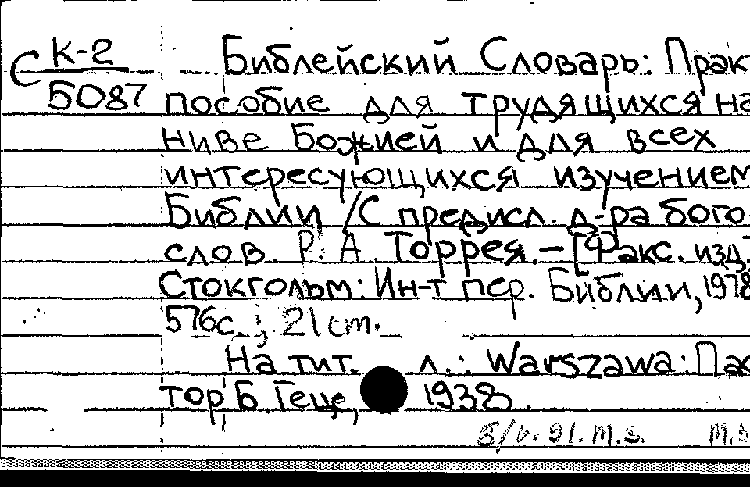 С К-2
5087
Библейский Словарь: Прак
пособие для трудящихся на
ниве Божией и для всех
интересующихся изучением
Библии /С предисл. д-ра бого
слов. Р. А. Торрея.–[Факс. изд.
Стокгольм: Ин-т пер. Библии, 1978
576с.; 21cm.
На тит. л.: Warszawa: Пас
тор Б. Геце, 1938.
91. m.s. m.s